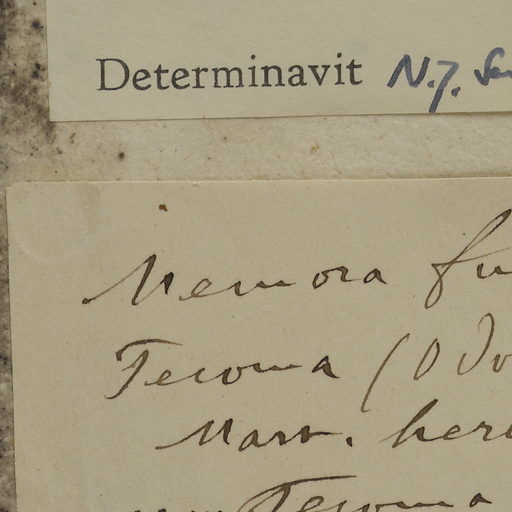 Determinavit N.Y. San
Memora fu
Tecoma (Odo
Mart. her
Tecoma